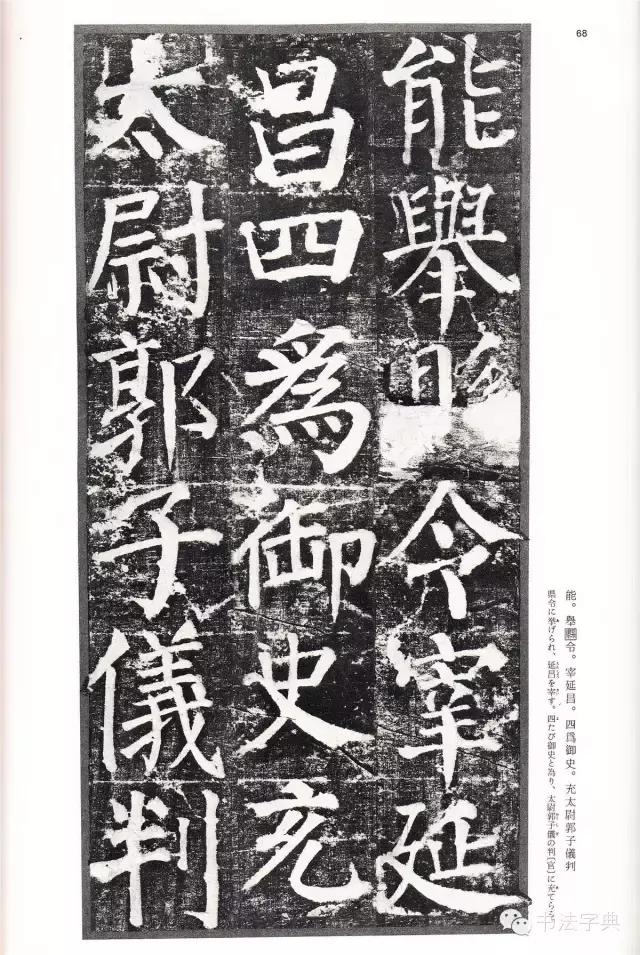 68
能舉縣令宰延
昌四爲御史充
太尉郭子儀判
能。舉縣令。宰延昌。四爲御史。充太尉郭子儀判
県令に挙げられ、延昌を宰す。四たび御史と為り、太尉郭子儀の判〔官〕に充てらる。
书法字典